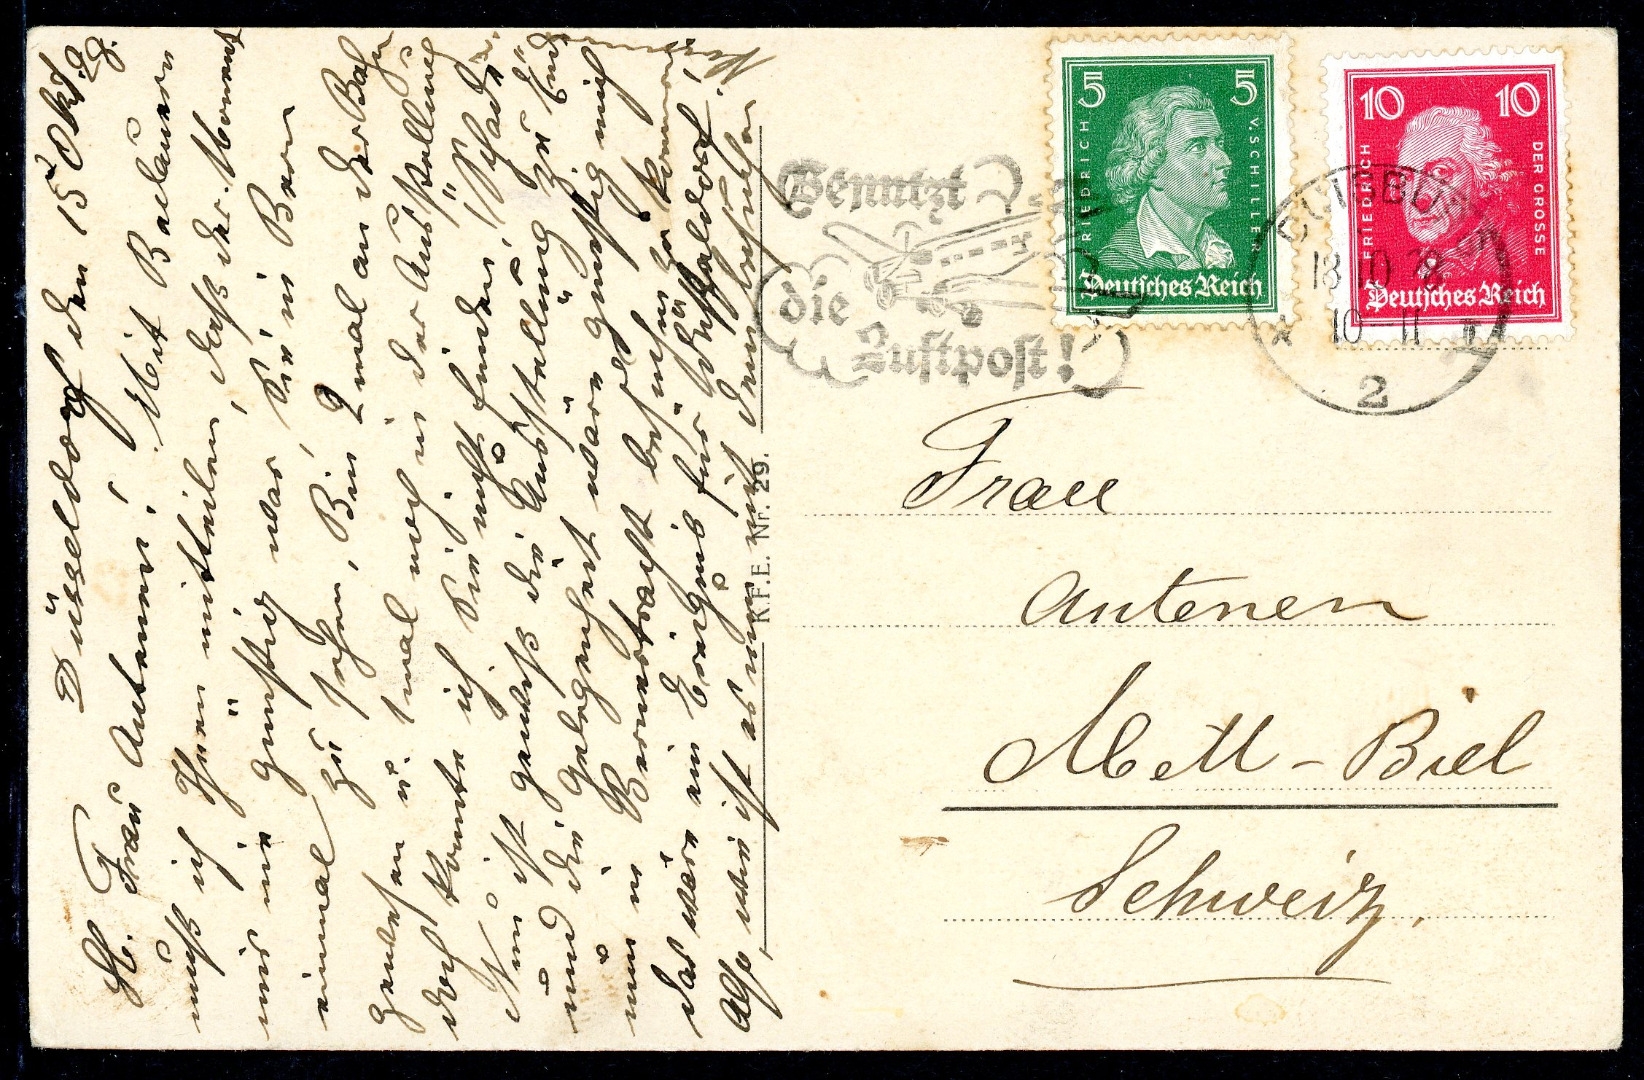 Düsseldorf den 15 Okt.
Frau Antenen! Mit Bedauern
muß ich Ihnen mitteilen, daß der Moment
mir nie günstig war, Sie in Bern
einmal zu sehen, Bin 2 mal an der Bahn
gewesen u. 1 mal noch in der Ausstellung
doch konnte ich Sie nicht finden, Schade.
Nun ist gewiß die Ausstellung zu End
und die Gelegenheit wäre günstig mich
nun in besuchen zu kommen
das wäre ein Ereignis für Düsseldorf!
Also, wie ist es nun mit dem besuchen
K.F.E. Nr. 29.
Benutzt
die
Luftpost!
5 5
FRIEDRICH V. SCHILLER
Deutsches Reich
10 10
FRIEDRICH DER GROSSE
Deutsches Reich
DUISBURG
18 10
10-11
2
Frau
Antenen
Mett-Biel
Schweiz.